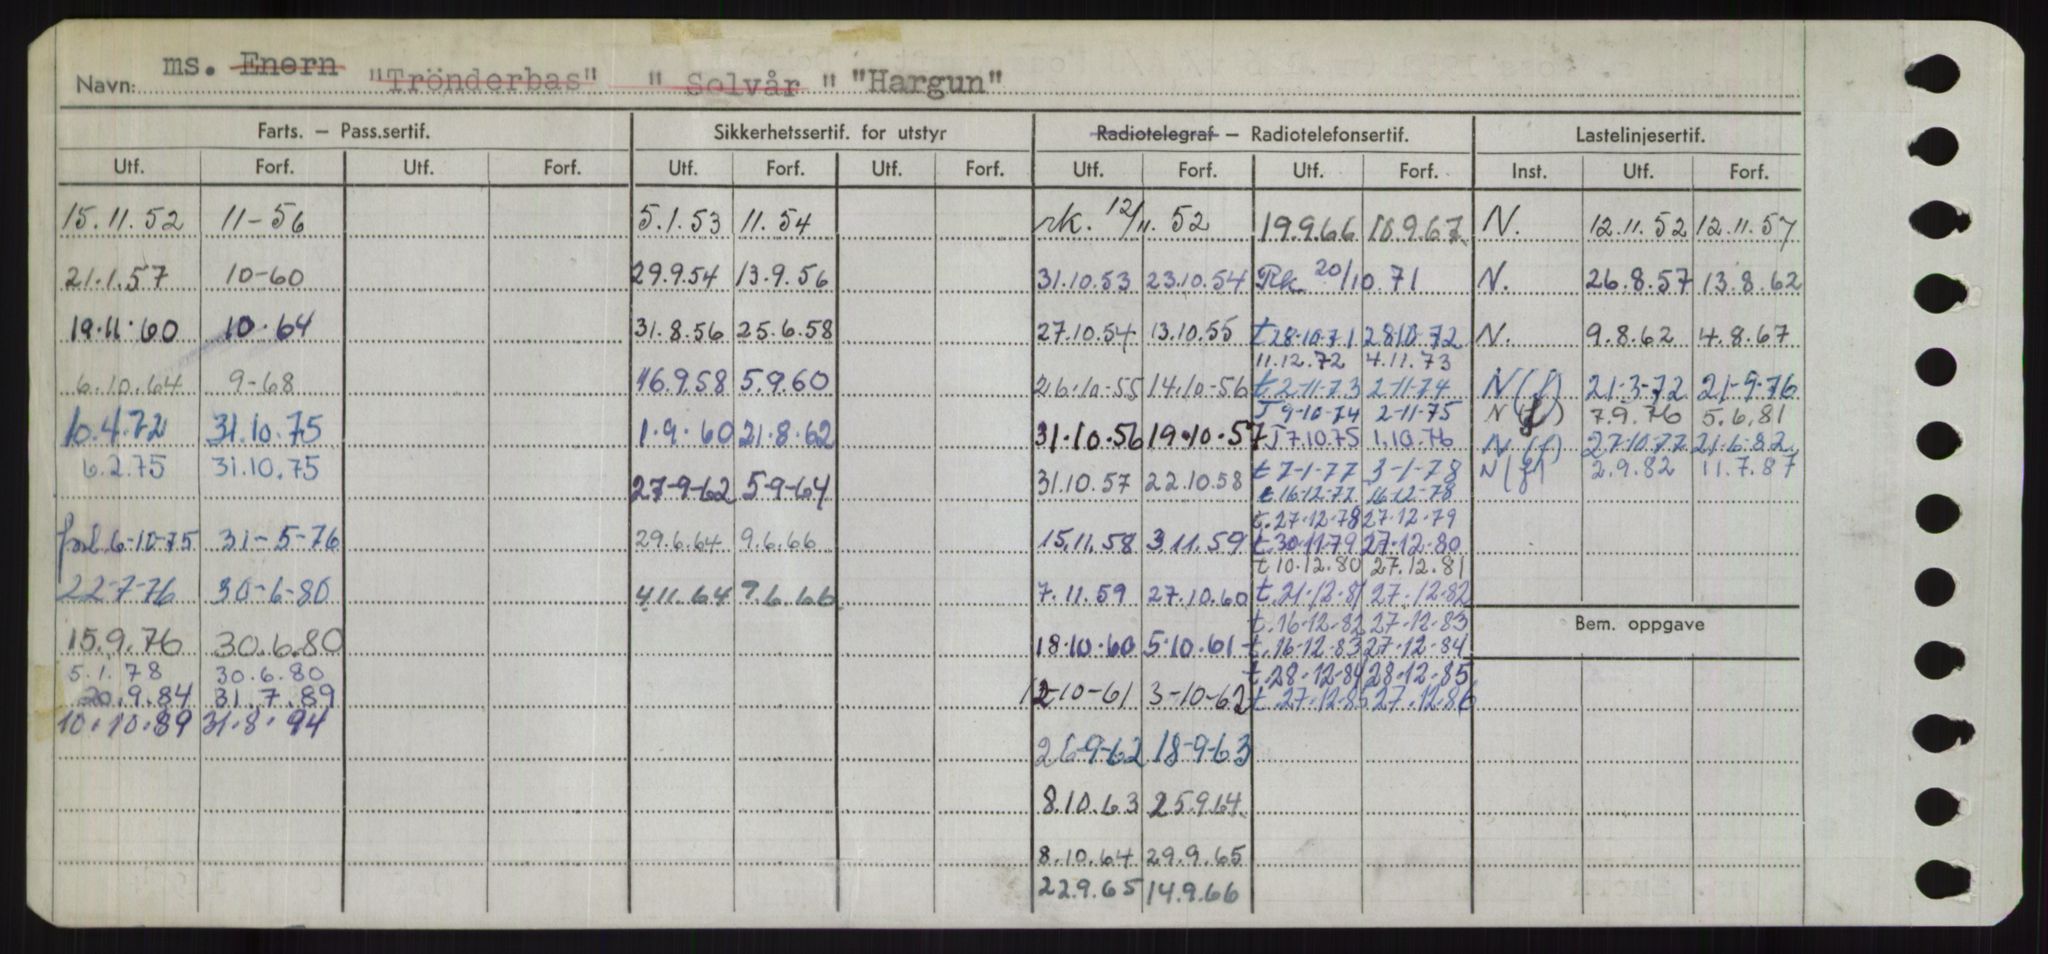 Navn: ms. Enern "Trönderbas" "Solvår" "Hargun"
Farts. – Pass.sertif. Sikkerhetssertif. for utstyr Radiotelegraf – Radiotelefonsertif. Lastelinjesertif.
Utf. Forf. Utf. Forf. Utf. Forf. Utf. Forf. Utf. Forf. Utf. Forf. Inst. Utf. Forf.
15.11.52 11-56 5.1.53 11.54 rk. 12/11. 52 19.9.66 18.9.67 N. 12.11.52 12.11.57
21.1.57 10-60 29.9.54 13.9.56 31.10.53 23.10.54 Rk 20/10 71 N. 26.8.57 13.8.62
19.11.60 10.64 31.8.56 25.6.58 27.10.54 13.10.55 t 28.10.71 28.10.72 N. 9.8.62 4.8.67
11.12.72 4.11.73
6.10.64 9-68 16.9.58 5.9.60 26-10-55 14.10-56 t 2-11-73 2-11-74 N(f) 21-3-72 21-9-76
T 9-10-74 2-11-75 N(f) 7.9.76 5.6.81
10.4.72 31.10.75 1.9.60 21.8.62 31.10.56 19.10.57 T 7.10.75 1.10.76 N(f) 27.10.77 21.6.82
6.2.75 31.10.75 27-9-62 5-9-64 31.10.57 22.10.58 t 7-1-77 3-1-78 N(f) 2.9.82 11.7.87
t 16-12-77 16-12-78
t.27-12-78 27-12-79
forl 6-10-75 31-5-76 29.6.64 9.6.66 15.11.58 3.11.59 t.30-11-79 27-12-80
t 10.12.80 27.12.81
22-7-76 30-6-80 4.11.64 ?.6.66 7.11.59 27.10.60 t.21-12-81 27-12-82
t.16-12-82 27-12-83 Bem. oppgave
15.9.76 30.6.80 18.10.60 5.10.61 t.16-12-83 27-12-84
5.1.78 30.6.80 t.28-12-84 28-12-85
20.9.84 31.7.89 12-10-61 3-10-62 t.27-12-85 27-12-86
10.10.89 31.8.94
26-9-62 18-9-63
8.10.63 25.9.64
8.10.64 29.9.65
22.9.65 14.9.66